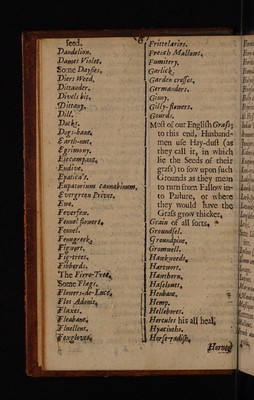 seed.
Dandelion.
Dames Violet.
Some Daysies.
Diers Weed.
Dittander.
Divels bit.
Dittany.
Dill.
Docks.
Dogs-bane.
Earth-nut.
Egrimony.
Elecampane.
Endive.
Eupatorium cannabinum.
Evergreen Privet.
Ewe.
Feverfew.
Fennel flowers.
Fennel.
Fenugreek.
Figwort.
Fig-trees.
Filberds.
The Firre-Tree.
Some Flags.
Flowers-de-Luce.
Flos Adonis.
Flaxes.
Fleabane.
Fluellens.
Foxgloves.
Frittelaries.
French Mallows.
Fumitery.
Garlick.
Garden cresses.
Germanders.
Giony.
Gilly-flowers.
Gourds.
Most of our English Grass;
to this end, Husband-
men use Hay-dust (as
they call it, in which
lie the Seeds of their
grass) to sow upon such
Grounds as they mean
to turn from Fallow in-
to Pasture, or where
they would have the
Grass grow thicker.
Grain of all sorts.
Groundsel.
Groundpine.
Gromwell.
Hawkweeds.
Hartwort.
Hawthorn.
Haselnuts.
Henbane.
Hemp.
Hellebores.
Hercules his all heal.
Hyacinths.
Horse-radish.
Horned